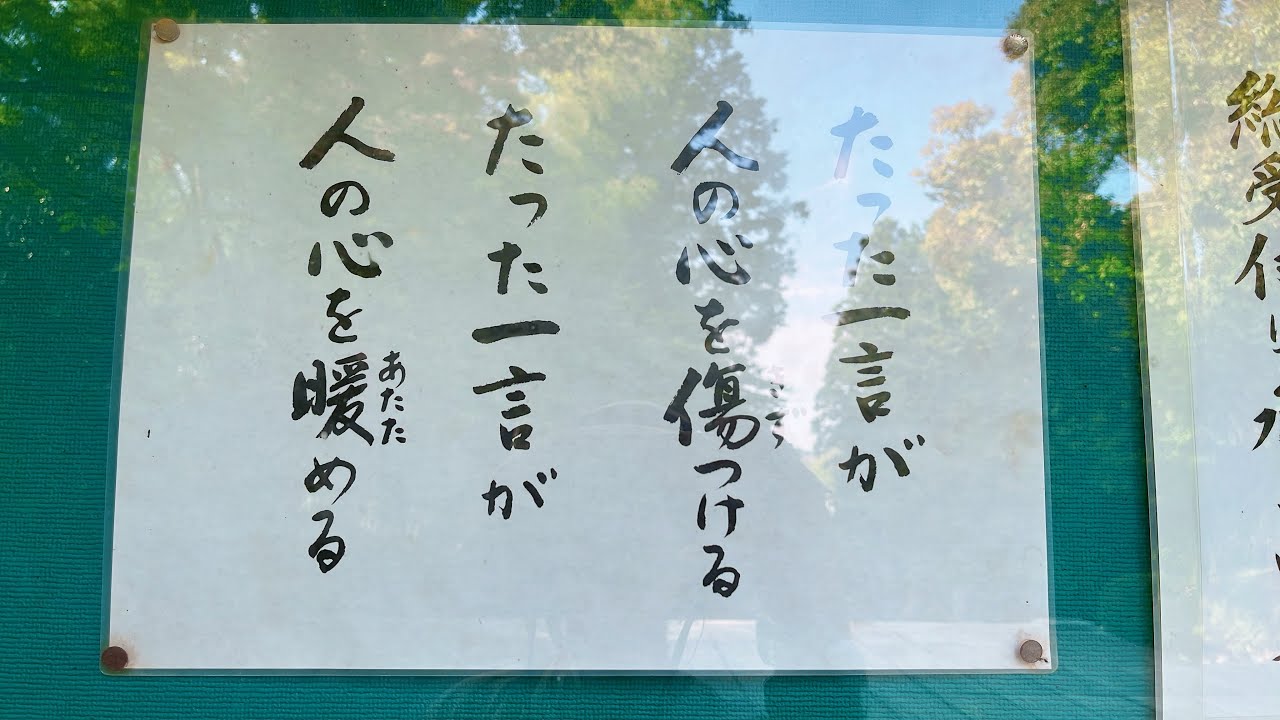 たった一言が
人の心を傷つける
たった一言が
人の心を暖める
あたた